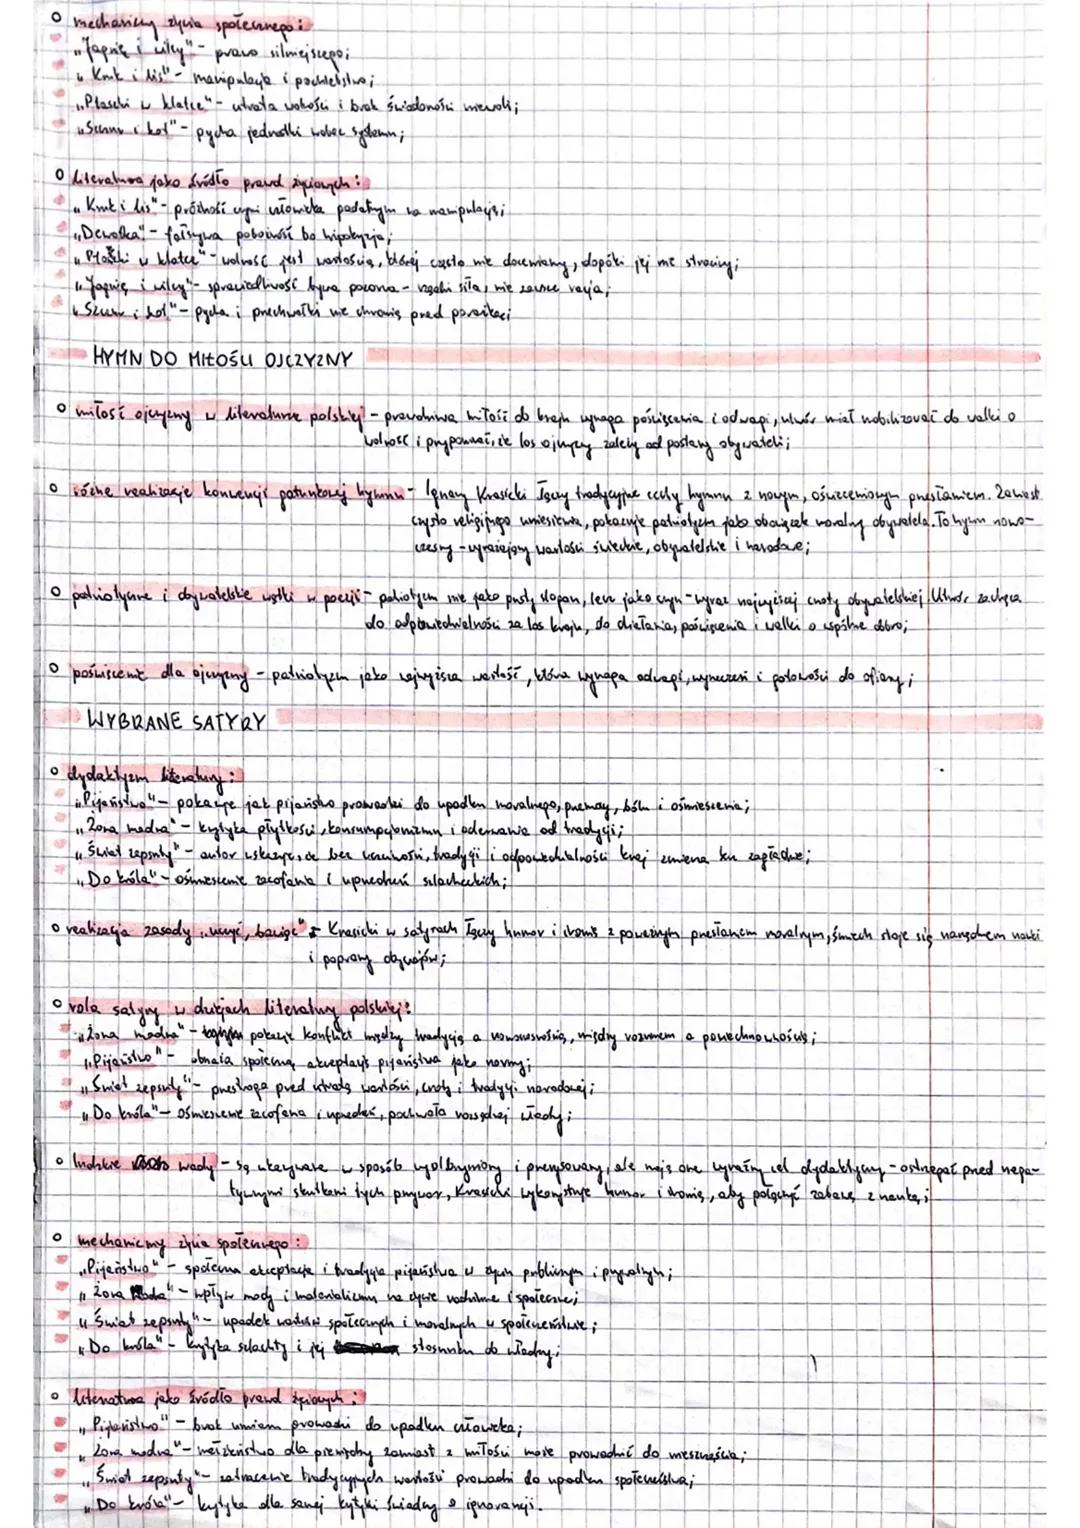 o mechanizmy życia społecznego:
„Jagnię i wilcy" - prawo silniejszego;
„Kruk i lis" - manipulacja i pochlebstwo;
„Ptaszki w klatce" - utrata wolności i brak świadomości niewoli;
„Szczur i kot" - pycha jednostki wobec systemu;
o literatura jako źródło prawd życiowych:
„Kruk i lis" - próżność czyni człowieka podatnym na manipulację;
„Dewotka" - fałszywa pobożność to hipokryzja;
„Ptaszki w klatce" - wolność jest wartością, której często nie doceniamy, dopóki jej nie stracimy;
„Jagnię i wilcy" - sprawiedliwość bywa pozorna - rządzi siła, nie zawsze racja;
„Szczur i kot" - pycha i przechwałki nie chronią przed porażką;
HYMN DO MIŁOŚCI OJCZYZNY
o miłość ojczyzny w literaturze polskiej - prawdziwa miłość do kraju wymaga poświęcenia i odwagi, utwór miał mobilizować do walki o
wolność i przypomnieć, że los ojczyzny zależy od postawy obywateli;
o różne realizacje konwencji gatunkowej hymnu - Ignacy Krasicki łączy tradycyjne cechy hymnu z nowym, oświeceniowym przesłaniem. Zamiast
czysto religijnego uniesienia, pokazuje patriotyzm jako obowiązek moralny obywatela. To hymn nowo-
czesny - wyrażający wartości świeckie, obywatelskie i narodowe;
o patriotyczne i obywatelskie wątki w poezji - patriotyzm nie jako pusty slogan, lecz jako czyn - wyraz najwyższej cnoty obywatelskiej. Utwór zachęca
do odpowiedzialności za los kraju, do działania, poświęcenia i walki o wspólne dobro;
o poświęcenie dla ojczyzny - patriotyzm jako najwyższa wartość, która wymaga odwagi, wyrzeczeń i gotowości do ofiary;
WYBRANE SATYRY
o dydaktyzm literatury:
„Pijaństwo" - pokazuje jak pijaństwo prowadzi do upadku moralnego, przemocy, bólu i ośmieszenia;
„Żona modna" - krytyka płytkości, konsumpcjonizmu i oderwania od tradycji;
„Świat zepsuty" - autor wskazuje, że bez uczciwości, tradycji i odpowiedzialności kraj zmierza ku zagładzie;
„Do króla" - ośmieszenie zacofania i uprzedzeń szlacheckich;
o realizacja zasady „uczyć, bawiąc" - Krasicki w satyrach łączy humor i ironię z poważnym przesłaniem moralnym, śmiech staje się narzędziem nauki
i poprawy obyczajów;
o rola satyry w dziejach literatury polskiej:
„Żona modna" - pokazuje konflikt między tradycją a nowoczesnością, między rozumem a powierzchownością;
„Pijaństwo" - obnaża społeczną akceptację pijaństwa jako normy;
„Świat zepsuty" - przestroga przed utratą wartości, cnoty i tradycji narodowej;
„Do króla" - ośmieszenie zacofania i uprzedzeń, pochwała rozsądnej władzy;
o ludzkie wady - są ukazywane w sposób wyolbrzymiony i przerysowany, ale mają one wyraźny cel dydaktyczny - ostrzegać przed nega-
tywnymi skutkami tych przywar, Krasicki wykorzystuje humor i ironię, aby połączyć zabawę z nauką;
o mechanizmy życia społecznego:
„Pijaństwo" - społeczna akceptacja i tradycja pijaństwa w życiu publicznym i prywatnym;
„Żona modna" - wpływ mody i materializmu na życie rodzinne i społeczne;
„Świat zepsuty" - upadek wartości społecznych i moralnych w społeczeństwie;
„Do króla" - krytyka szlachty i jej stosunku do władzy;
o literatura jako źródło prawd życiowych:
„Pijaństwo" - brak umiaru prowadzi do upadku człowieka;
„Żona modna" - małżeństwo dla pieniędzy zamiast z miłości może prowadzić do nieszczęścia;
„Świat zepsuty" - zatracenie tradycyjnych wartości prowadzi do upadku społeczeństwa;
„Do króla" - krytyka dla samej krytyki świadczy o ignorancji.